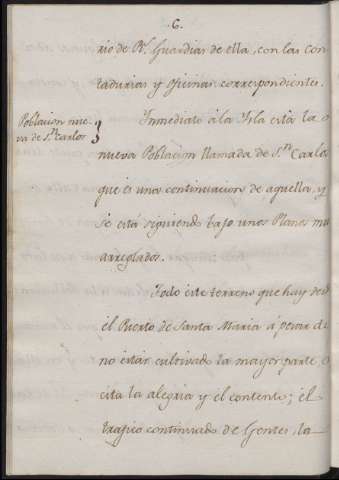 6.
rio de Rl. Guardias de ella, con las con
tadurias y oficinas correspondientes.
Poblacion nue
va de Sn. Carlos
Inmediato à la Isla està la
nueva Poblacion llamada de Sn. Carlos
que es una continuacion de aquella, y
se està siguiendo bajo unos Planos mui
arreglados.
Todo este terreno que hay desde
el Puerto de Santa Maria à pesar de
no estàr cultivado la mayor parte
cita la alegria y el contento; el
trafico continuado de Gentes, la